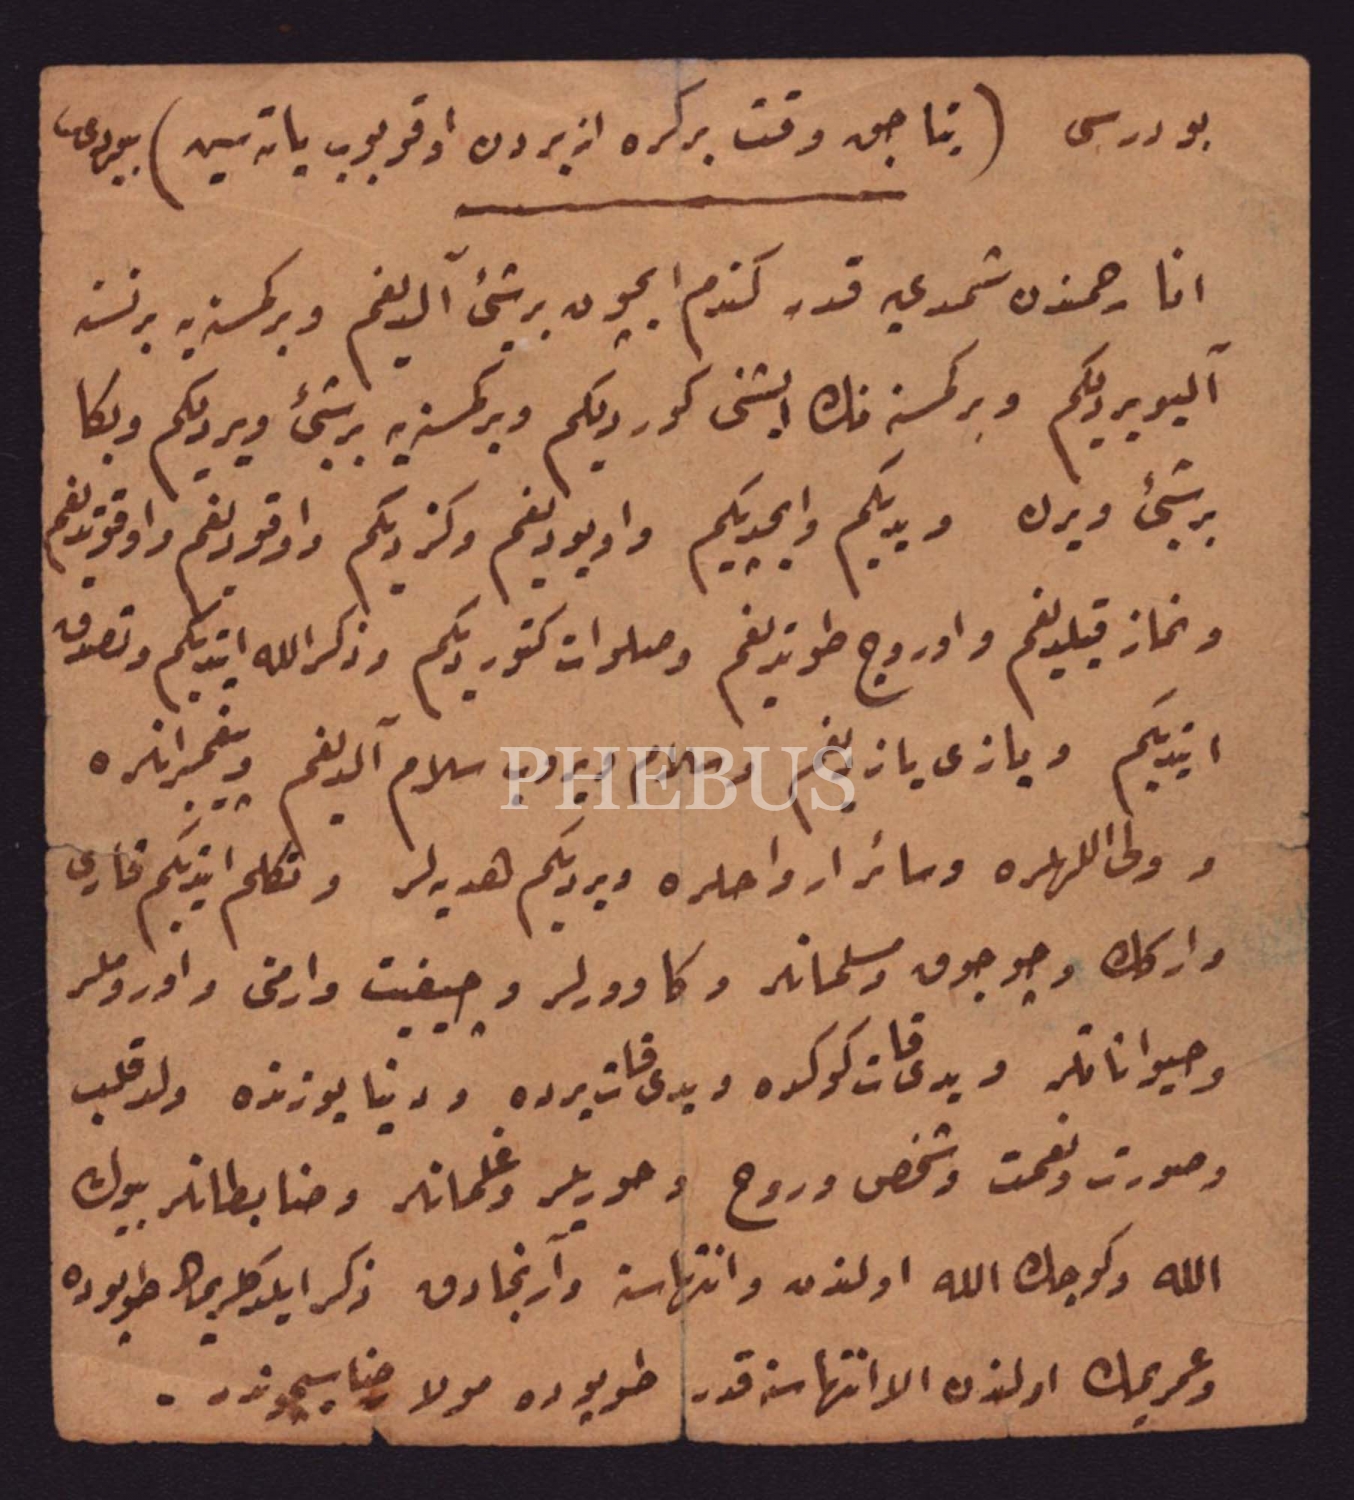 بو درسی (یتاجق وقت بر کره ازبردن اوقویوب یاتەسین) بیوردی
انا رحمندن شمدی یه قدر کندم ایچون بر شئ آلدیغم وبر کمسنه یه برنسنه
آلیویردیکم وبر کمسنه نك ایشنی کوردیکم وبر کمسنه یه بر شئ ویردیکم وبکا
بر شئ ویرن ویدیکم وایچدیکم واویودیغم وکزدیکم واوقودیغم واوقوتدیغم
ونماز قیلدیغم واوروج طوتدیغم وصلوات کتوردیکم وذکر الله ایتدیکم وتصدق
ایتدیکم ویازی یازدیغم وسلام ویروب سلام آلدیغم وپیغمبرانلره
و ولی اللهلره وسائر ارواحلره ویردیکم هدیه لر وتکلم ایتدیکم قاری
وارکك وچوجوق ومسلمانلر وکاوورلر وچیفیت وارمنی واوروملر
وحیواناتلر ویدی قات کوکده ویدی قات یرده ودنیا یوزنده ولد قلب
وصورت ونعمت وشخص وروح وحوریلر وغلمانلر وضابطانلر بیوك
الله وکوچك الله اولندن وانتهاسنه وآرنجادق ذکر ایلدکلریمك طوپوده
وعمریمك اولندن الا انتهاسنه قدر طوپوده مولا رضاسیچوندر .
PHEBUS